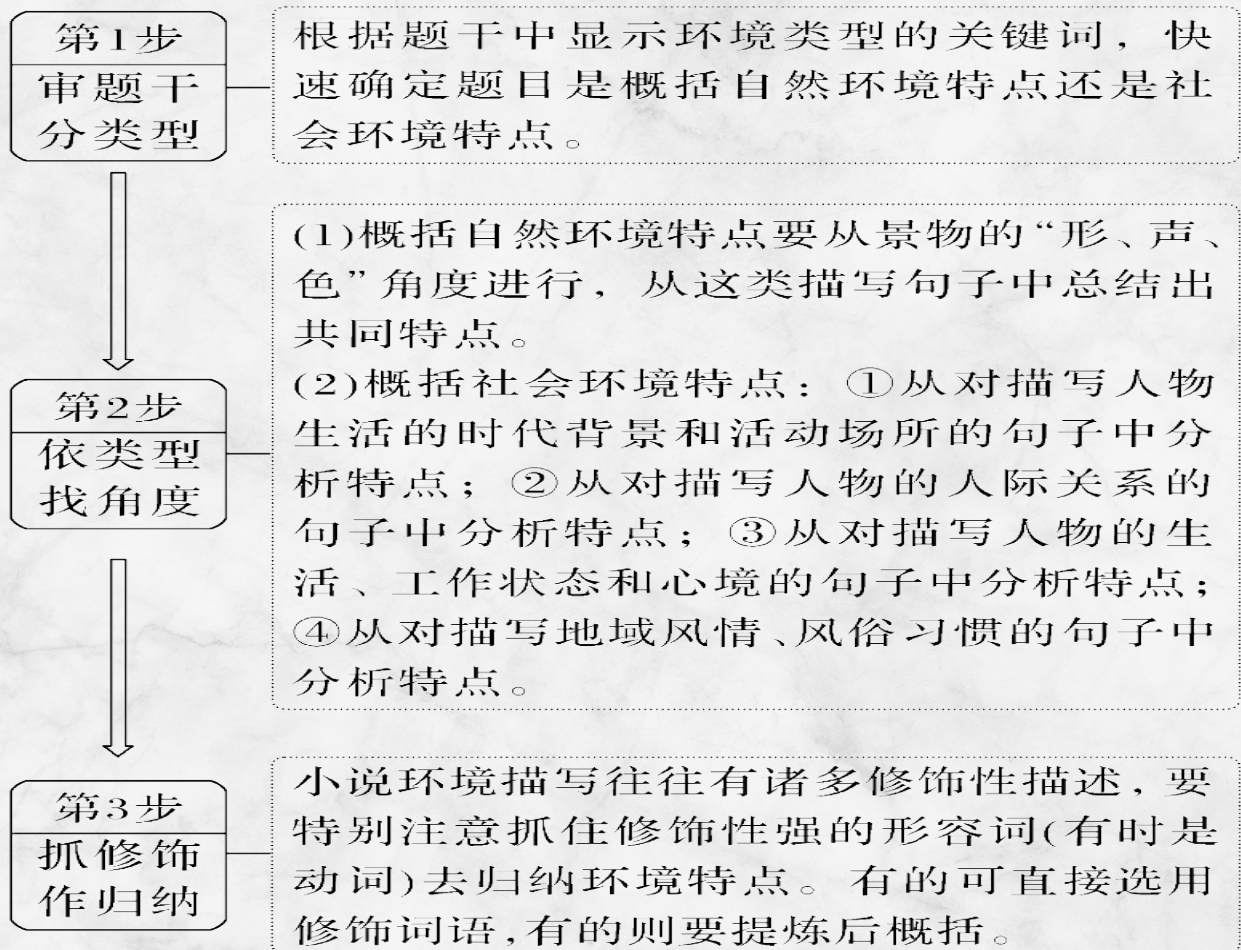 第1步
审题干
分类型
根据题干中显示环境类型的关键词，快
速确定题目是概括自然环境特点还是社
会环境特点。
第2步
依类型
找角度
(1)概括自然环境特点要从景物的“形、声、
色”角度进行，从这类描写句子中总结出
共同特点。
(2)概括社会环境特点：①从对描写人物
生活的时代背景和活动场所的句子中分
析特点；②从对描写人物的人际关系的
句子中分析特点；③从对描写人物的生
活、工作状态和心境的句子中分析特点；
④从对描写地域风情、风俗习惯的句子中
分析特点。
第3步
抓修饰
作归纳
小说环境描写往往有诸多修饰性描述，要
特别注意抓住修饰性强的形容词(有时是
动词)去归纳环境特点。有的可直接选用
修饰词语，有的则要提炼后概括。